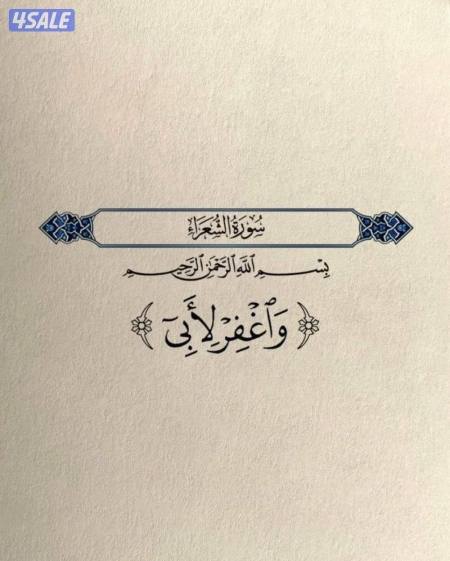 4SALE
سُورَةُ الشُّعَرَاءِ
بِسْمِ ٱللَّهِ ٱلرَّحْمَٰنِ ٱلرَّحِيمِ
﴿وَٱغْفِرْ لِأَبِىٓ﴾